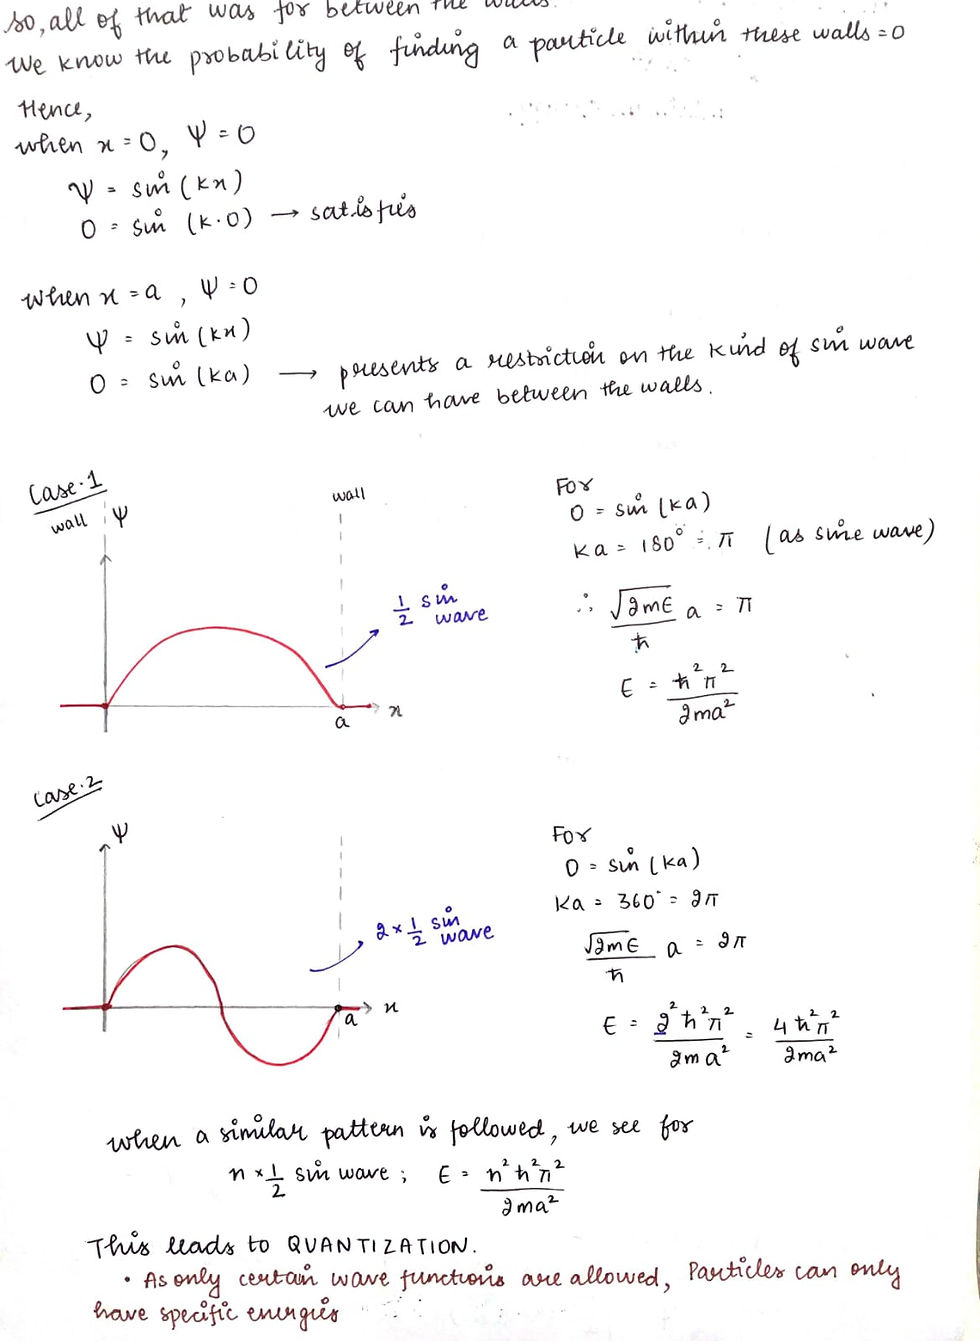 so, all of that was for between the walls.
We know the probability of finding a particle within these walls = 0
Hence,
when x = 0, Ψ = 0
Ψ = sin (kx)
0 = sin (k·0) → satisfies
when x = a , Ψ = 0
Ψ = sin (kx)
0 = sin (ka) → presents a restriction on the kind of sin wave
we can have between the walls.
Case·1
wall Ψ
wall
1/2 sin
wave
a
x
For
0 = sin (ka)
ka = 180° = π (as sine wave)
∴ √2mE/ħ a = π
E = ħ²π²/2ma²
Case·2
Ψ
2 × 1/2 sin
wave
a
x
For
0 = sin (ka)
ka = 360° = 2π
√2mE/ħ a = 2π
E = 2²ħ²π²/2ma² = 4ħ²π²/2ma²
when a similar pattern is followed, we see for
n × 1/2 sin wave ; E = n²ħ²π²/2ma²
This leads to QUANTIZATION.
• As only certain wave functions are allowed, Particles can only
have specific energies